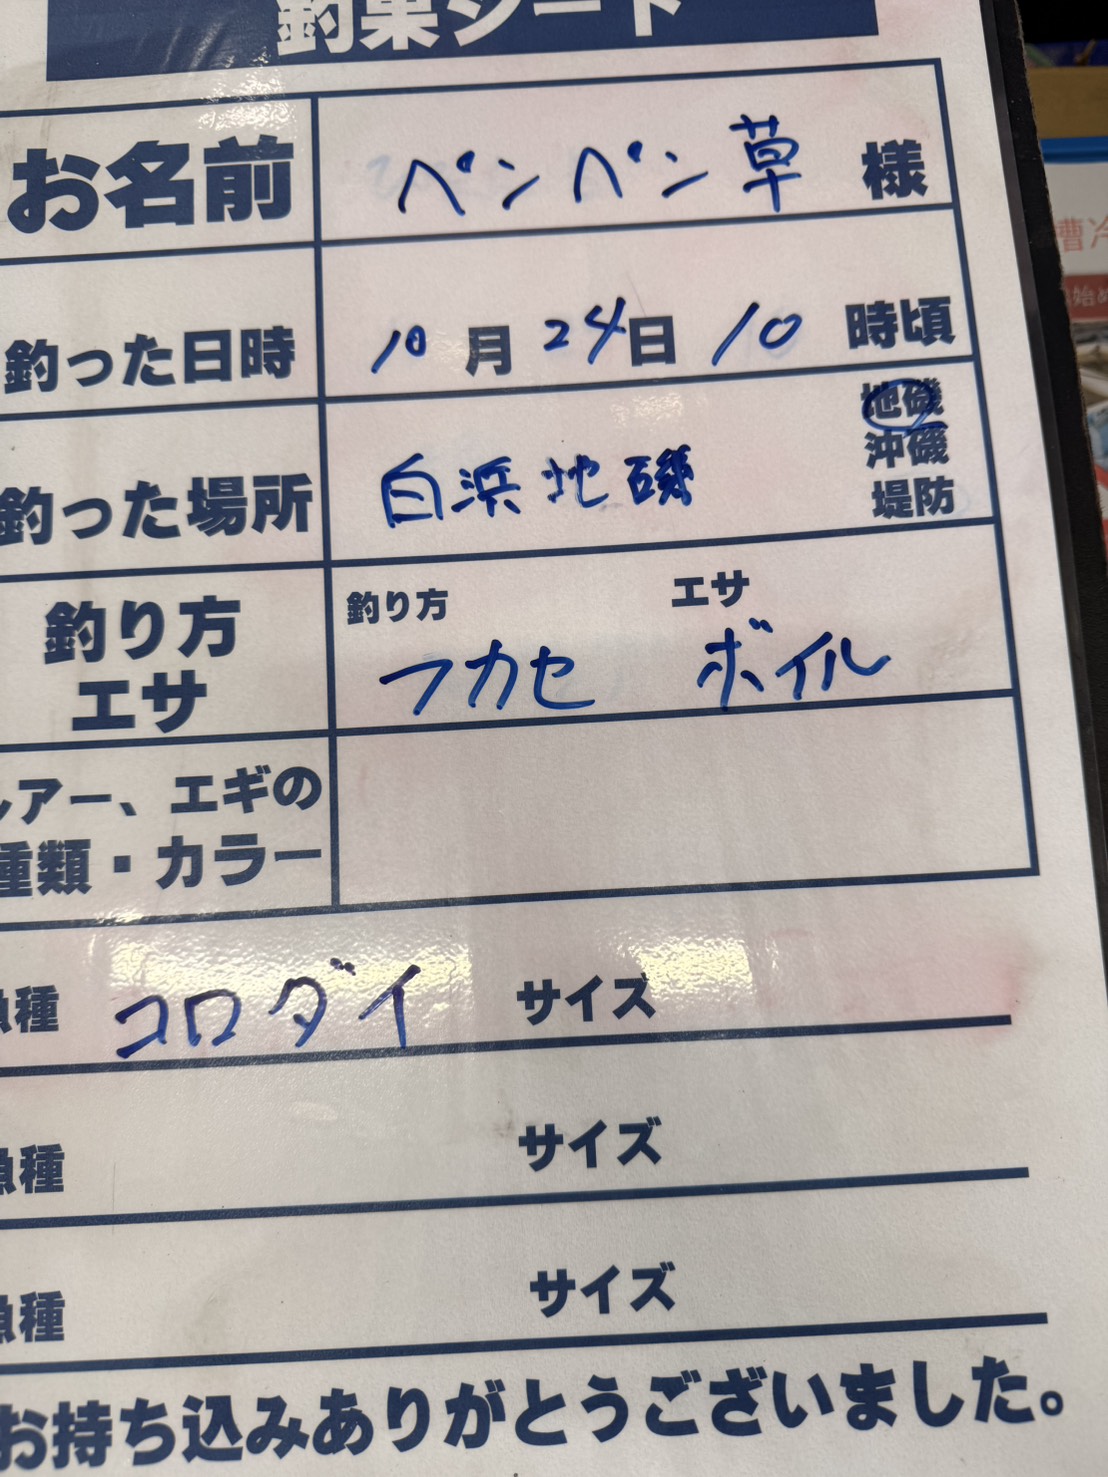 釣果シート
お名前 ペンペン草 様
釣った日時 10月24日 10時頃
釣った場所 白浜地磯 地磯
沖磯
堤防
釣り方 エサ
釣り方
エサ
フカセ ボイル
ルアー、エギの
種類・カラー
魚種 コロダイ サイズ
魚種 サイズ
魚種 サイズ
お持ち込みありがとうございました。